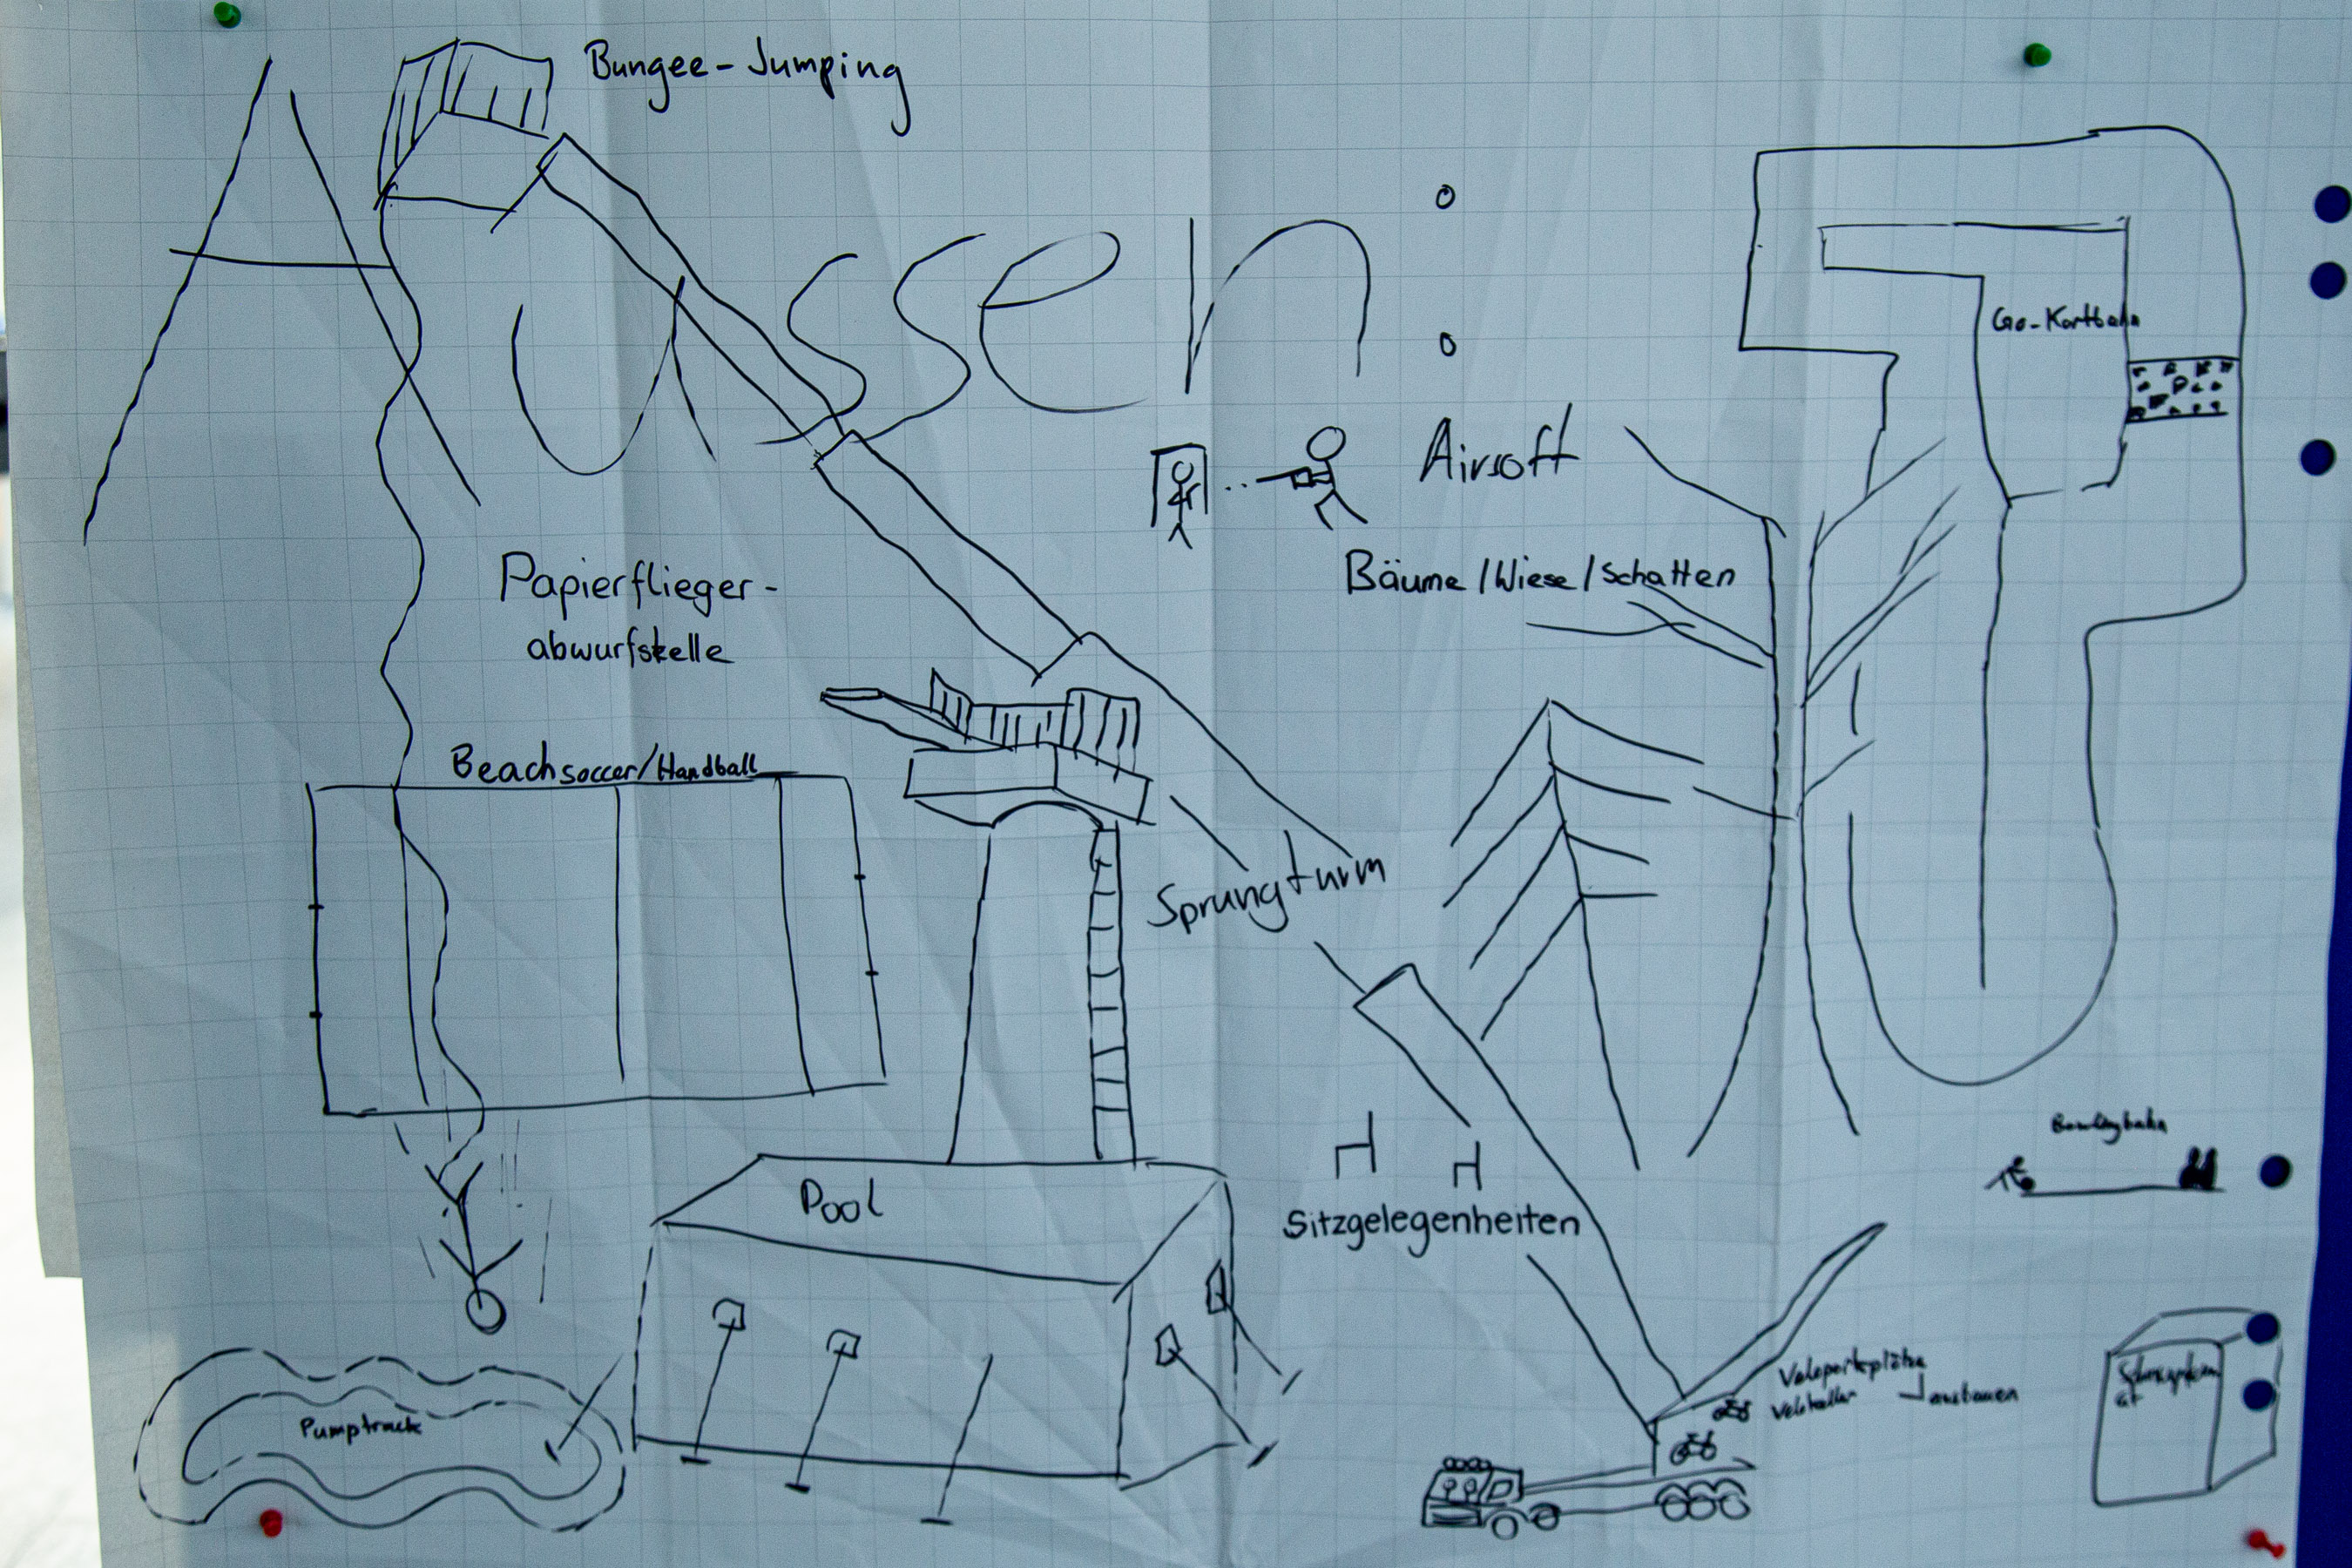 Bungee-Jumping
Aussen:
Go-Kartbahn
Airsoft
Bäume/Wiese/Schatten
Papierflieger-
abwurfstelle
Beachsoccer/Handball
Sprungturm
Bowlingbahn
Pool
Sitzgelegenheiten
Veloparkplätze
Velokeller
ausbauen
Pumptrack